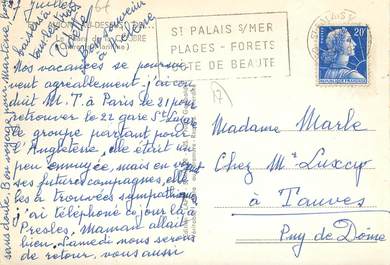 27 juillet
baisers à
toutes trois
Odette
Bon souvenir
à Hélène
Nos vacances se poursui
vent agréablement j'ai con
duit M.T. à Paris le 21 pour
retrouver le 22 gare St Lazare
le groupe partant pour
l'Angleterre, elle était un
peu ennuyée, mais en voyant
ses futures compagnes, elle
les a trouvées sympathiques
j'ai téléphoné ce jour là à
Presles, Maman allait
bien. Samedi nous serons
de retour. vous aussi
sans doute. Bon voyage
ST PALAIS S/MER
PLAGES - FORETS
COTE DE BEAUTE
20F
Madame Marle
Chez Mr Luxcy
à Tauves
Puy de Dôme
17